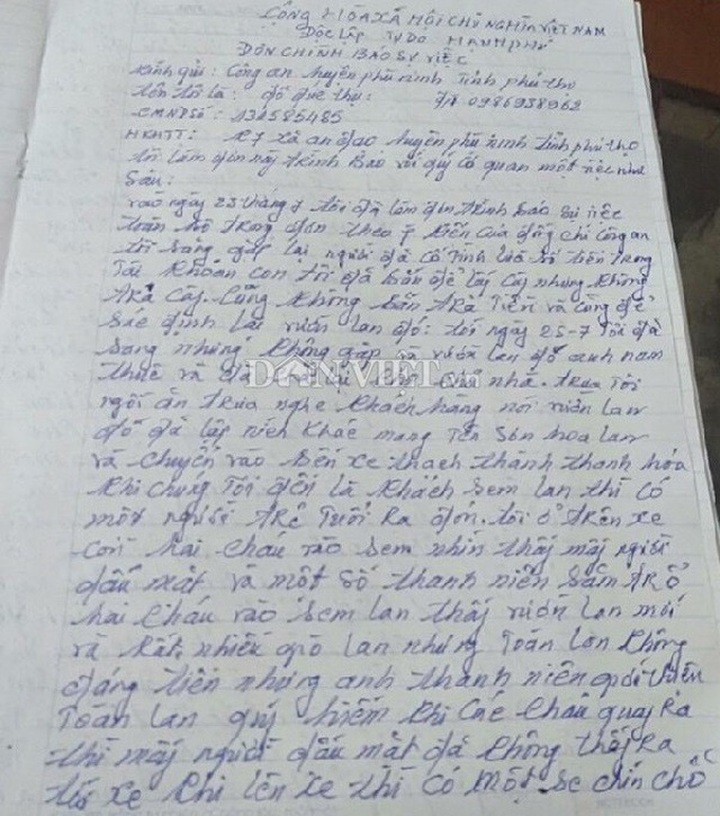 CỘNG HÒA XÃ HỘI CHỦ NGHĨA VIỆT NAM
Độc Lập Tự Do HẠNH PHÚ
ĐƠN CHÌNH BÁO SỰ VIỆC
Kính gửi: Công an huyện phù ninh Tỉnh phú thọ
tên tôi là: đỗ đức thụ: 0986938962
CMND số: 131585485
HKTT: K7 xã an đạo huyện phù ninh tỉnh phú thọ
tôi làm đơn này trình Báo với quý cơ quan một việc như
Sau:
vào ngày 23 tháng 7 tôi đã làm đơn trình báo sự việc
trong đơn theo ý kiến của đồng chí công an
thì sang gặp lại người đã cố tình lừa số tiền trong
Tài khoản con tôi đã bắn để lấy cây nhưng không
trả cây. Cũng không bắn trả Tiền và cũng để
sác định lại vườn lan đó: tới ngày 25-7 Tôi đã
sang nhưng không gặp và vườn lan đó anh nam
thuê và đã trả lại cho chủ nhà. trưa Tôi
ngồi ăn trưa nghe khách hàng nói vườn lan
đó đã lập ních khác mang tên Sơn hoa lan
và chuyển vào bến xe thạch thành thanh hóa
khi chúng Tôi đến là khách sem lan thì có
một người trẻ Tuổi Ra đón. tôi ở trên xe
còn hai cháu vào sem nhìn thấy mấy người
dấu mặt và một số thanh niên săm trổ
hai cháu vào sem lan thấy vườn lan mới
và rất nhiều giò lan nhưng Toàn lan không
đáng tiền nhưng anh thanh niên giới thiệu
Toàn lan quý hiếm khi các cháu quay Ra
thì mấy người dấu mặt đã không thấy ra
tới xe khi lên xe thì có một se chín chỗ
DÂN VIỆT.vn